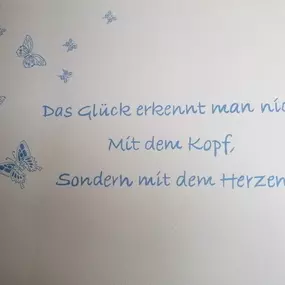 Das Glück erkennt man nic
Mit dem Kopf,
Sondern mit dem Herzen